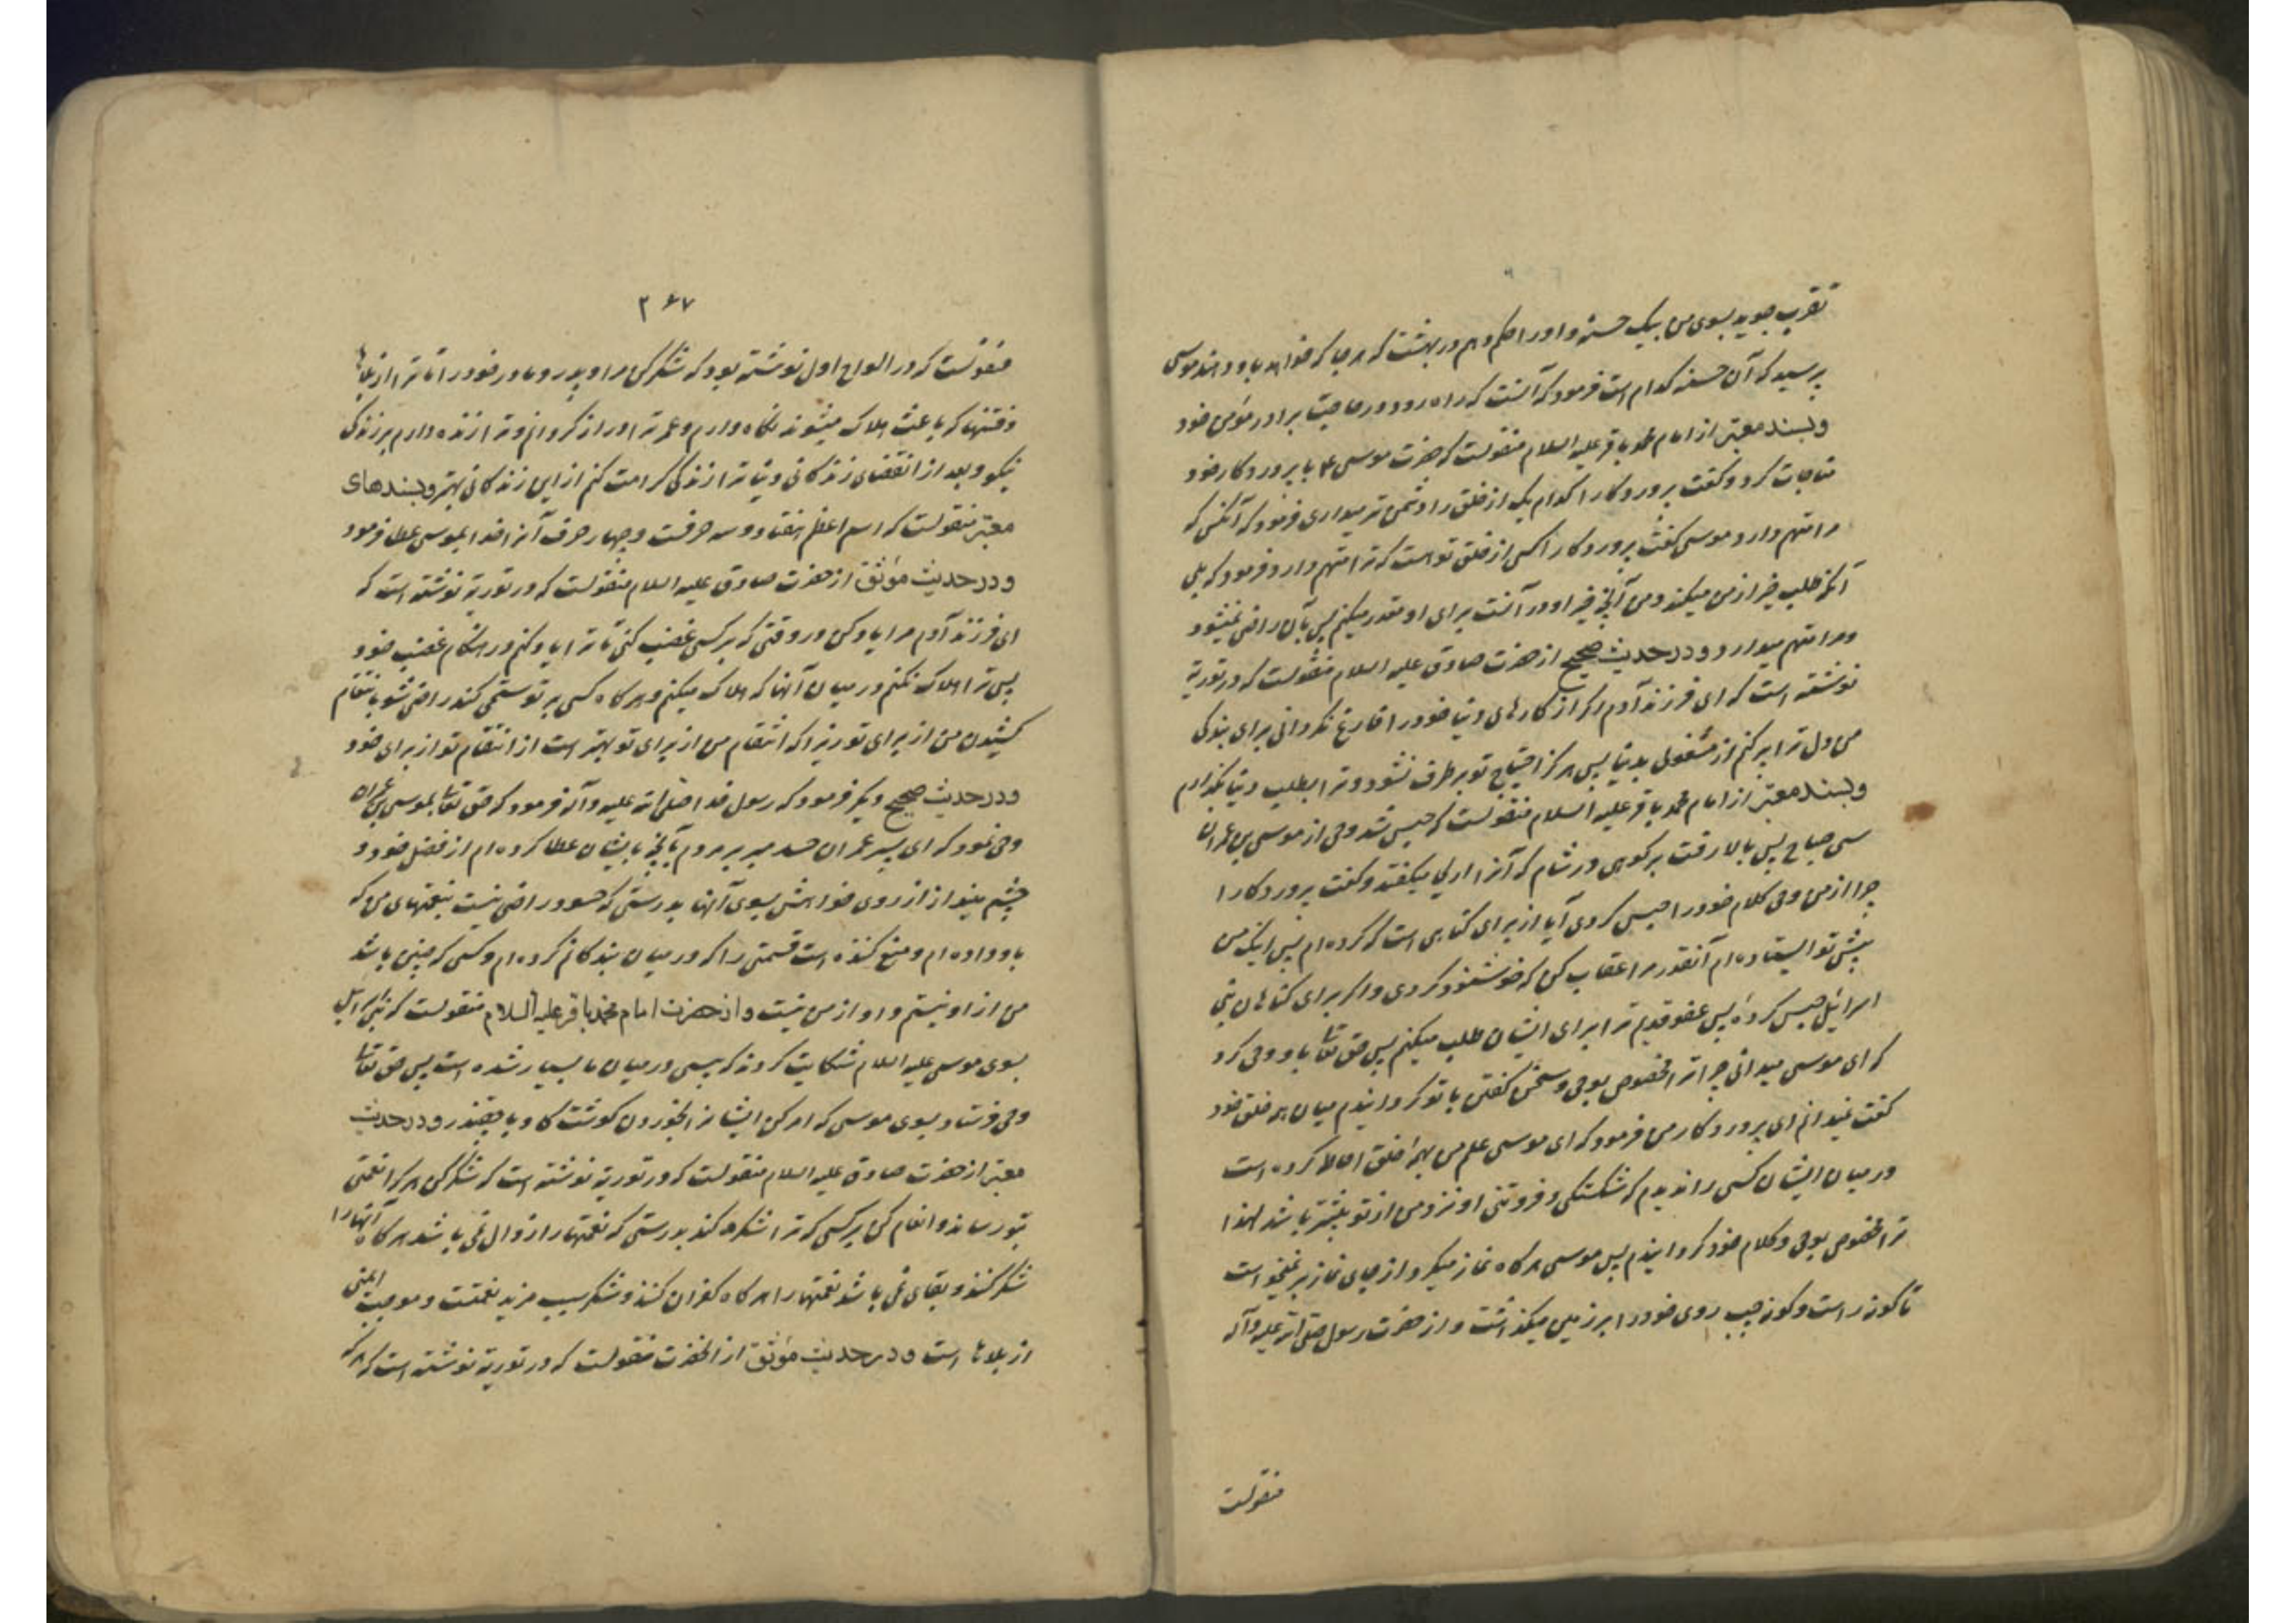 تقرب جوید بسوی من بیک حسنه و او را حکم دهم در بهشت که هر جا که خواهد باو دهند موسی
پرسید که آن حسنه کدام است فرمود که آنست که راه رود در حاجت برادر مؤمن خود
و بسند معتبر از امام محمد باقر علیه السلام منقولست که حضرت موسی ع با پروردگار خود
مناجات کرد و گفت پروردگارا کدام یک از خلق را دشمن تر میداری فرمود که آنکس که
مرا متهم دارد موسی گفت پروردگارا کسی از خلق تو است که ترا متهم دارد فرمود که بلی
آنکه طلب خیر از من میکند و من آنچه خیر او در آنست برای او مقدر میکنم پس بآن راضی نمیشود
و مرا متهم میدارد و در حدیث صحیح از حضرت صادق علیه السلام منقولست که در توریة
نوشته است که ای فرزند آدم اگر از کارهای دنیا خود را فارغ نگردانی برای بندگی
من دل ترا پر کنم از مشغولی بدنیا پس هرگز احتیاج تو برطرف نشود و ترا بطلب دنیا بگذارم
و بسند معتبر از امام محمد باقر علیه السلام منقولست که حبس شد وحی از موسی بن عمران
سی صباح پس بالا رفت بر کوهی در شام که آنرا اریحا میگفتند و گفت پروردگارا
چرا از من وحی و کلام خود را حبس کردی آیا از برای گناهی است که کرده ام پس اینک من
پیش تو ایستاده ام آنقدر مرا عقاب کن که خوشنود گردی و اگر برای گناهان بنی
اسرائیل حبس کردهٔ پس عفو قدیم ترا برای ایشان طلب میکنم پس حق تعالی باو وحی کرد
که ای موسی میدانی چرا ترا مخصوص بوحی و سخن گفتن با تو گردانیدم میان همه خلق خود
گفت نمیدانم ای پروردگار من فرمود که ای موسی علم من بهمه خلق احاطه کرده است
در میان ایشان کسی را ندیدم که شکستگی و فروتنی او نزد من از تو بیشتر باشد لهذا
ترا مخصوص بوحی و کلام خود گردانیدم پس موسی هرگاه نماز میکرد از جای نماز بر نمیخواست
تا گونه راست و گونه چپ روی خود را بر زمین میگذاشت و از حضرت رسول صلی الله علیه و آله
منقولست
۲۶۷
منقولست که در الواح اول نوشته بود که شکر کن مرا و پدر و مادر خود را تا ترا از بلاها
و فتنها که باعث هلاک میشوند نگاه دارم و عمر ترا دراز گردانم و ترا زنده دارم بزندگی
نیکو و بعد از انقضای زندگانی دنیا ترا زندگی کرامت کنم از این زندگانی بهتر و بسندهای
معتبر منقولست که اسم اعظم هفتاد و سه حرفست و چهار حرف آنرا خدا بموسی عطا فرمود
و در حدیث موثق از حضرت صادق علیه السلام منقولست که در توریة نوشته است که
ای فرزند آدم مرا یاد کن در وقتی که بر کسی غضب کنی تا ترا یاد کنم در هنگام غضب خود
پس ترا هلاک نکنم در میان آنها که هلاک میکنم و هرگاه کسی بر تو ستمی کند راضی شو بانتقام
کشیدن من از برای تو زیرا که انتقام من از برای تو بهتر است از انتقام تو از برای خود
و در حدیث صحیح دیگر فرمود که رسول خدا صلی الله علیه و آله فرمود که حق تعالی بموسی بن عمران
وحی نمود که ای پسر عمران حسد مبر بر مردم بآنچه بایشان عطا کرده ام از فضل خود و
چشم مینداز از روی خواهش بسوی آنها بدرستی که حسود راضی نیست بنعمتهای من که
باو داده ام و منع کننده است قسمتی را که در میان بندگانم کرده ام و کسی که چنین باشد
من از او نیستم و او از من نیست و از حضرت امام محمد باقر علیه السلام منقولست که بنی اسرائیل
بسوی موسی علیه السلام شکایت کردند که پیسی در میان ما بسیار شده است پس حق تعالی
وحی فرستاد بسوی موسی که امر کن ایشانرا بخوردن گوشت گاو با چقندر و در حدیث
معتبر از حضرت صادق علیه السلام منقولست که در توریة نوشته است که شکر کن هر که را نعمتی
بتو رساند و انعام کن بر کسی که ترا شکر کند بدرستی که نعمتها را زوال نمی باشد هرگاه آنها را
شکر کنند و بقای نمی باشد نعمتها را هرگاه کفران کنند و شکر سبب مزید نعمتست و موجب ایمنی
از بلاها است و در حدیث موثق از آنحضرت منقولست که در توریة نوشته است که هر که